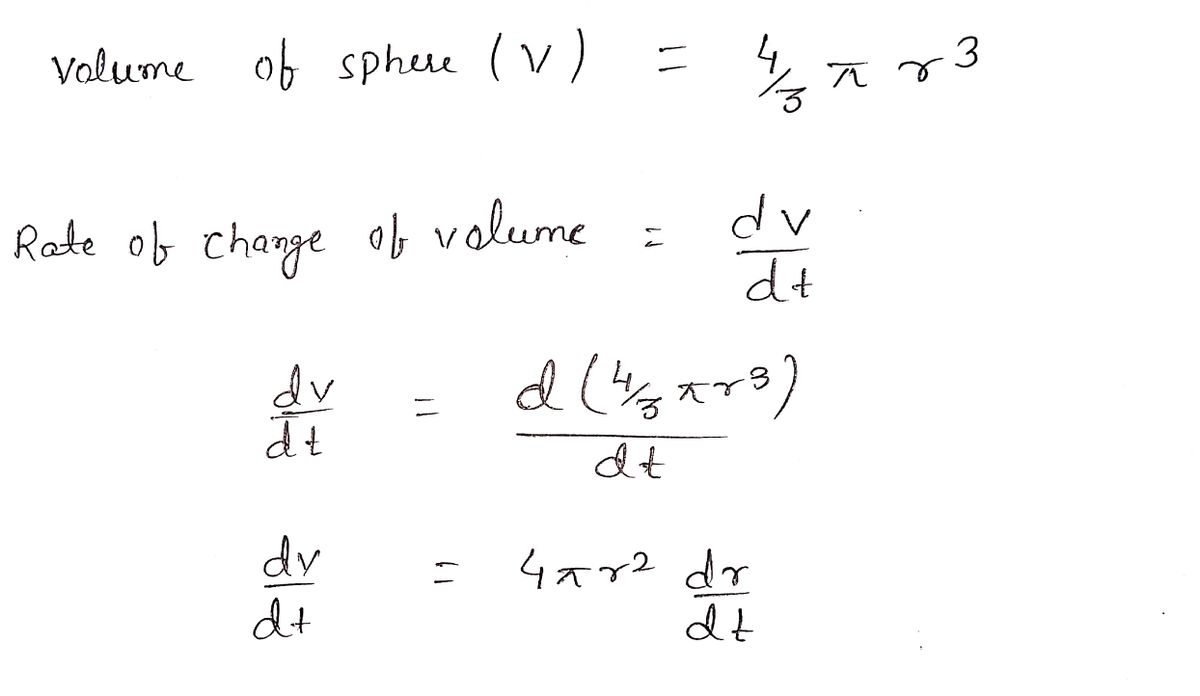 Volume of sphere (V) = 4/3 π r³
Rate of change of volume = dv/dt
dv/dt = d(4/3 πr³)/dt
dv/dt = 4πr² dr/dt